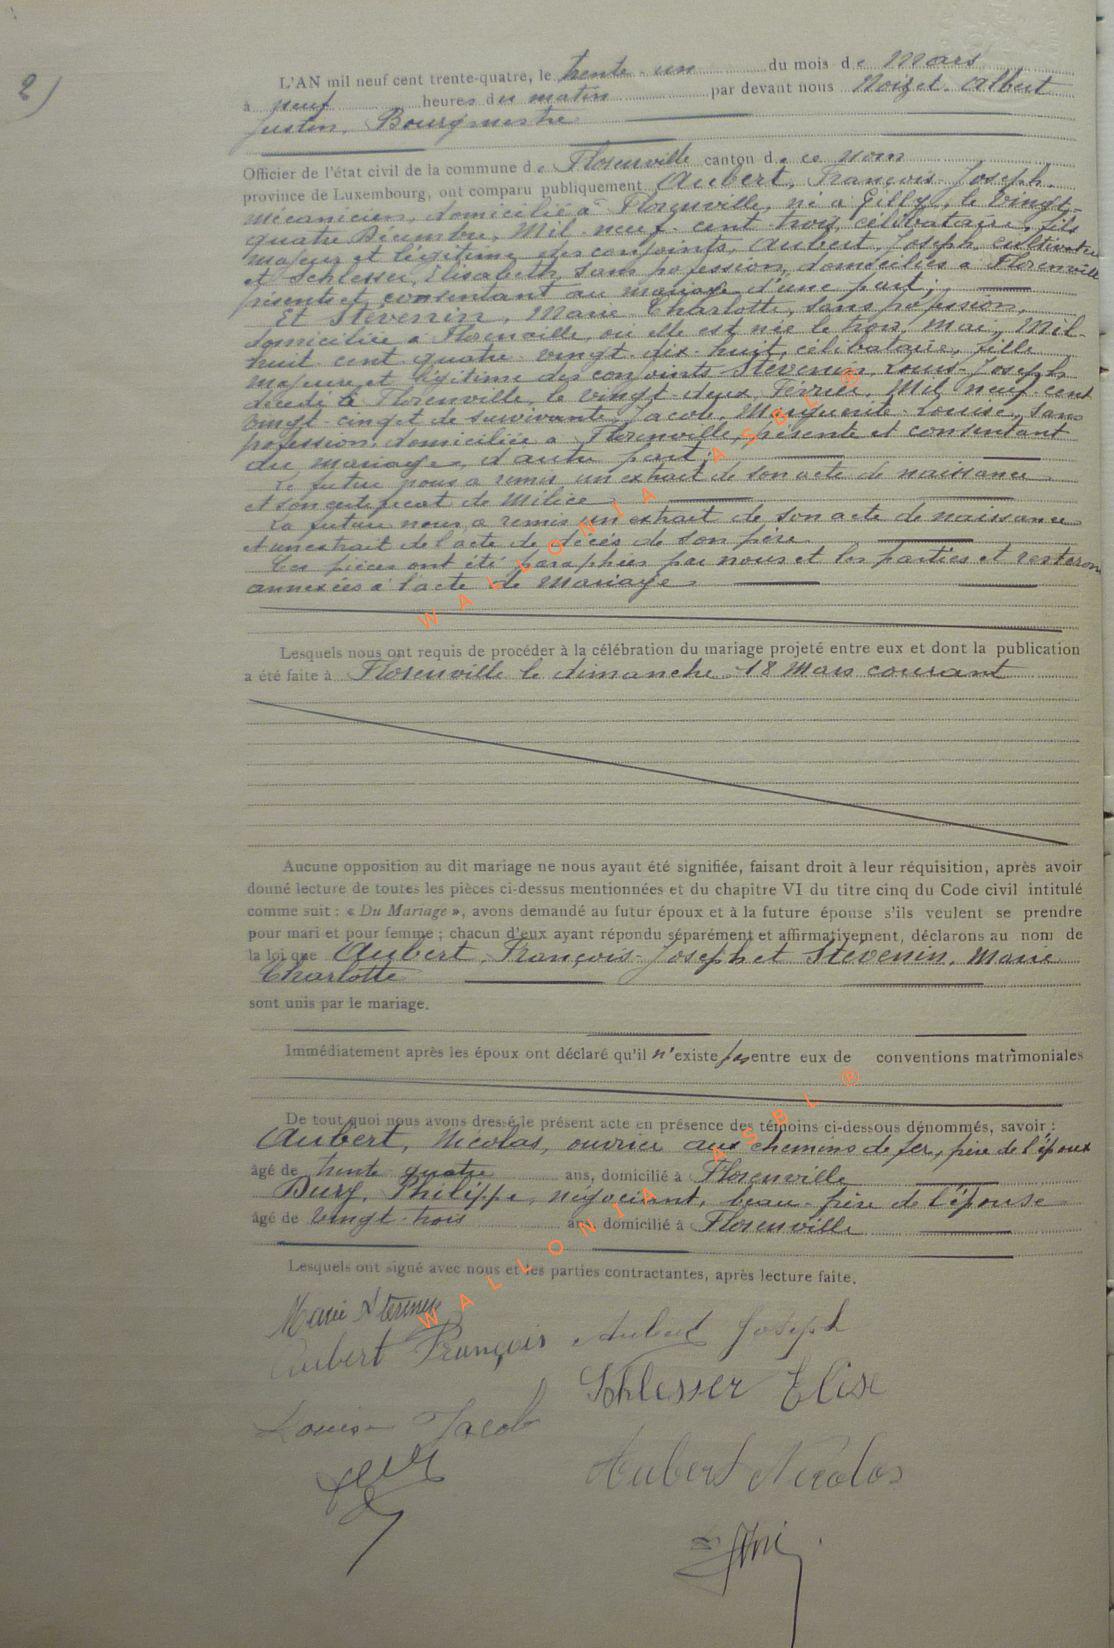 2)
L'AN mil neuf cent trente-quatre, le trente-un du mois de Mars
à neuf heures du matin par devant nous Noizet. Albert
Justin. Bourgmestre
Officier de l'état civil de la commune de Florenville canton de ce nom
province de Luxembourg, ont comparu publiquement Aubert, François-Joseph.
mécanicien, domicilié à Florenville, né à Gilly, le vingt-
quatre Décembre, Mil-neuf-cent-trois, célibataire, fils
majeur et légitime des conjoints, Aubert, Joseph, cultivateur
et Schlesser, Elisabeth, sans profession, domiciliés à Florenville
présents et consentant au mariage d'une part;
Et Stévenin, Marie Charlotte, sans profession,
domiciliée à Florenville, où elle est née le trois Mai, Mil-
huit cent quatre-vingt-dix-huit, célibataire, fille
majeure et légitime des conjoints Stévenin, Louis-Joseph
décédé à Florenville, le vingt-deux Février, Mil neuf-cent
vingt-cinq et de survivante Jacob, Marguerite-Louise, sans
profession, domiciliée à Florenville, présente et consentant
au mariage, d'autre part;
Le futur nous a remis un extrait de son acte de naissance
et son certificat de Milice
La future nous a remis un extrait de son acte de naissance
et un extrait de l'acte de décès de son père
Ces pièces ont été paraphées par nous et les parties et resteront
annexées à l'acte de mariage
Lesquels nous ont requis de procéder à la célébration du mariage projeté entre eux et dont la publication
a été faite à Florenville le dimanche 18 Mars courant
Aucune opposition au dit mariage ne nous ayant été signifiée, faisant droit à leur réquisition, après avoir
donné lecture de toutes les pièces ci-dessus mentionnées et du chapitre VI du titre cinq du Code civil intitulé
comme suit : « Du Mariage », avons demandé au futur époux et à la future épouse s'ils veulent se prendre
pour mari et pour femme ; chacun d'eux ayant répondu séparément et affirmativement, déclarons au nom de
la loi que Aubert, François-Joseph et Stévenin, Marie
Charlotte
sont unis par le mariage.
Immédiatement après les époux ont déclaré qu'il n'existe pas entre eux de conventions matrimoniales
De tout quoi nous avons dressé le présent acte en présence des témoins ci-dessous dénommés, savoir :
Aubert, Nicolas, ouvrier aux chemins de fer, frère de l'époux
âgé de trente quatre ans, domicilié à Florenville
Dury, Philippe, négociant, beau-frère de l'épouse
âgé de vingt-trois ans, domicilié à Florenville
Lesquels ont signé avec nous et les parties contractantes, après lecture faite.
Marie Stevenin
Aubert François Aubert Joseph
Schlesser Elise
Louise Jacob
Aubert Nicolas
WALLONIA ASBL ®
WALLONIA ASBL ®